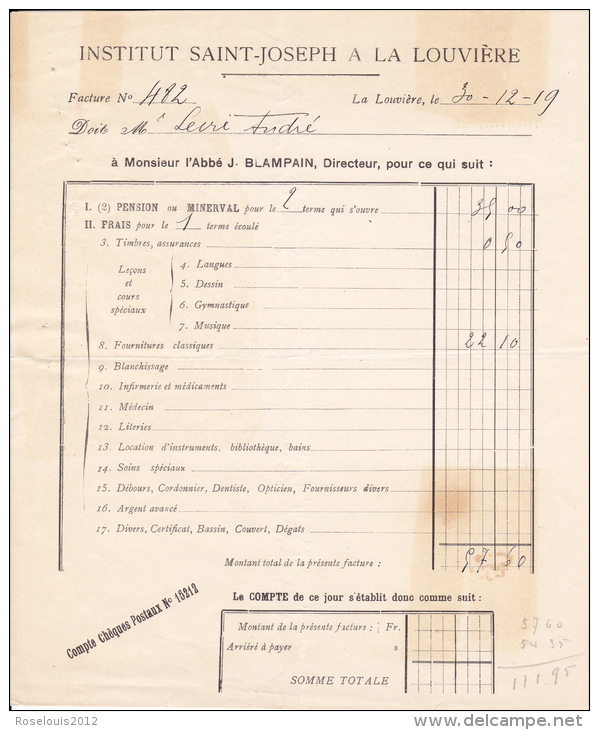 INSTITUT SAINT-JOSEPH A LA LOUVIÈRE
Facture No 482 La Louvière, le 30-12-19
Doit Mr André
à Monsieur l'Abbé J. BLAMPAIN, Directeur, pour ce qui suit :
I. (2) PENSION ou MINERVAL pour le 2 terme qui s'ouvre 35 00
II. FRAIS pour le 1 terme écoulé
3. Timbres, assurances 0 50
Leçons et cours spéciaux
4. Langues
5. Dessin
6. Gymnastique
7. Musique
8. Fournitures classiques 22 10
9. Blanchissage
10. Infirmerie et médicaments
11. Médecin
12. Literies
13. Location d'instruments, bibliothèque, bains
14. Soins spéciaux
15. Débours, Cordonnier, Dentiste, Opticien, Fournisseurs divers
16. Argent avancé
17. Divers, Certificat, Bassin, Couvert, Dégats
Montant total de la présente facture : 57 60
Compte chèques Postaux No 16212
Le COMPTE de ce jour s'établit donc comme suit :
Montant de la présente facture : Fr.
Arriéré à payer »
SOMME TOTALE
57 60
54 35
111.95
Roselouis2012
delcampe.net